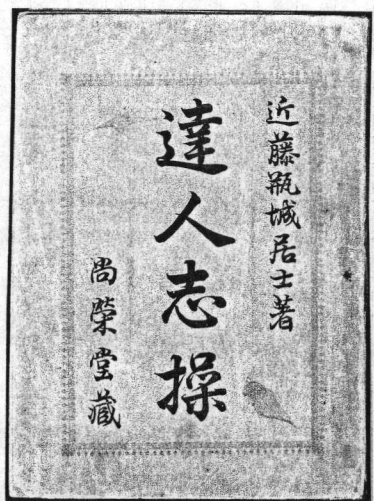 近藤瓶城居士著
達人志操
尚榮堂藏